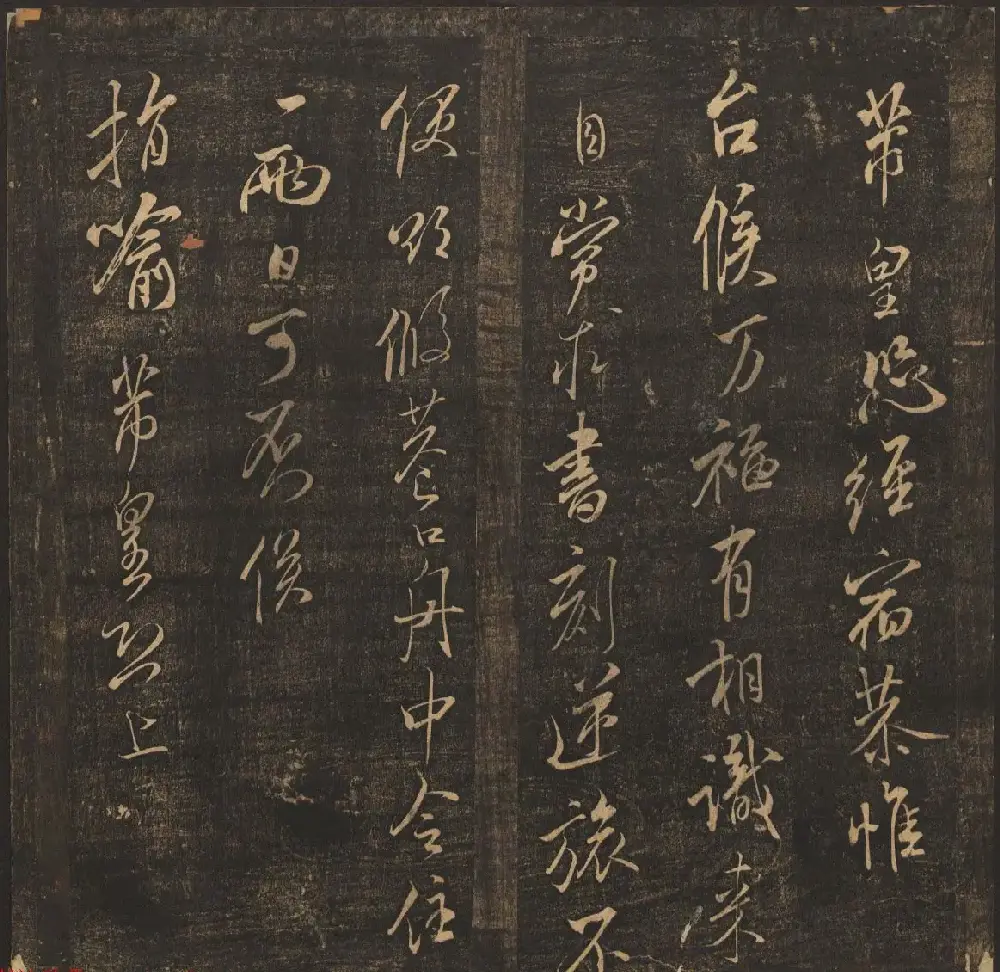 芾皇恐經宿恭惟
台候万福有相識来
自常求書刻逆旅不
便欲假蒼口舟中令住
一兩日可否俟
指喻芾皇恐上